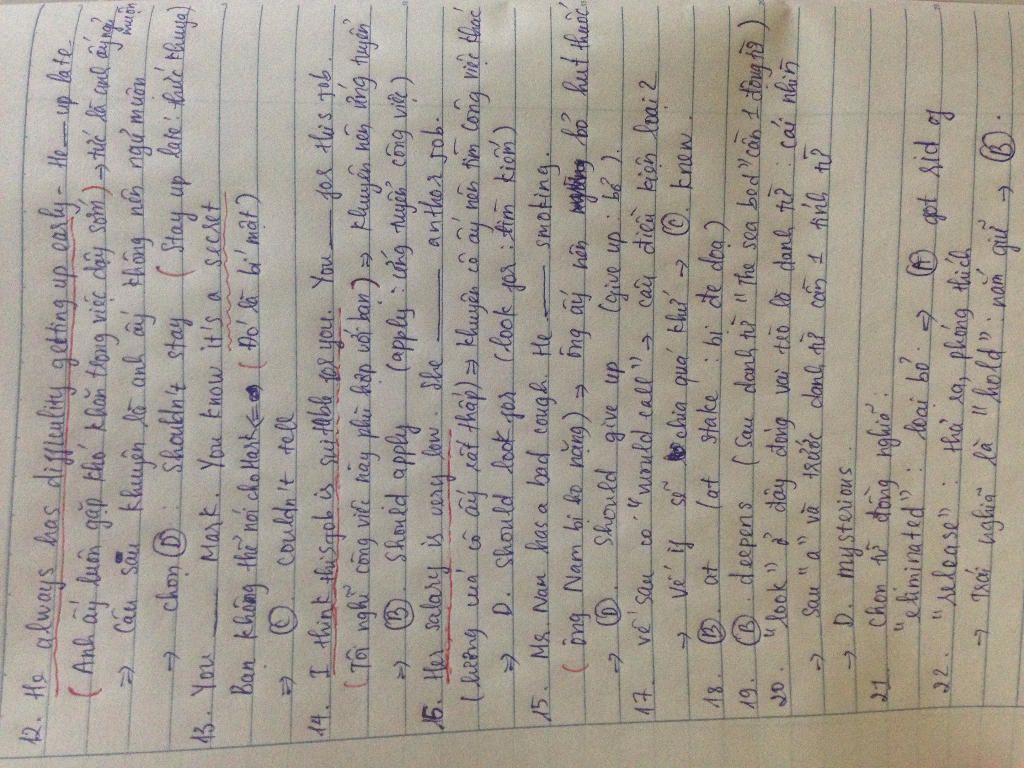 12. He always has difficulity getting up early - He ___ up late.
( Anh ấy luôn gặp khó khăn trong việc dậy sớm) → tiếc là anh ấy ngủ muộn
⇒ Câu khuyên là anh ấy không nên ngủ muộn
→ chọn D : Shouldn't stay ( Stay up late: thức khuya)
13. You ___ Mark. You know it's a secret
Bạn không thể nói cho Mark ( Đó là bí mật)
⇒ C couldn't tell
14. I think this job is suitble for you. You ___ for this job.
( Tôi nghĩ công việc này phù hợp với bạn) ⇒ Khuyên nên ứng tuyển
⇒ B Should apply (apply : ứng tuyển công việc)
15. Her salary is very low. She ___ anther job.
(lương của cô ấy rất thấp) ⇒ khuyên cô ấy nên tìm công việc khác
⇒ D. Should look for (look for: tìm kiếm)
15. Mr. Nam has a bad cough. He ___ smoking.
( ông Nam bị ho nặng) ⇒ ông ấy nên bỏ hút thuốc
⇒ D. Should give up (give up : bỏ ).
17. vế sau có "would call" → câu điều kiện loại 2
→ vế if sẽ chia quá khứ → C knew.
18. B at (at stake : bị đe dọa )
19. B. deepens (Sau danh từ "The sea bed" cần 1 động từ )
20. "look" ở đây đóng vai trò là danh từ : cái nhìn
→ sau "a" và trước danh từ cần 1 tính từ
→ D. mysterious.
21. chọn từ đồng nghĩa :
"eliminated" : loại bỏ. ⇒ A got rid of
22. "release" : thả ra, phóng thích
→ trái nghĩa là "hold": nắm giữ → B .